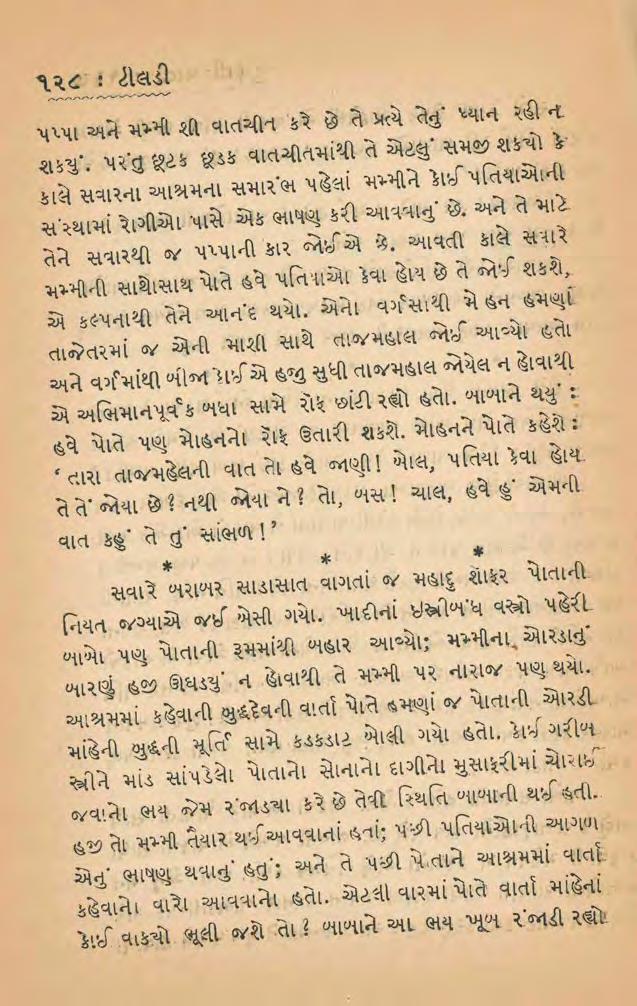 ૧૨૮ : ટીલડી
પપ્પા અને મમ્મી શી વાતચીત કરે છે તે પ્રત્યે તેનું ધ્યાન રહી ન
શકયું. પરંતુ છૂટક છૂડક વાતચીતમાંથી તે એટલું સમજી શકયો કે
કાલે સવારના આશ્રમના સમારંભ પહેલાં મમ્મીને કોઈ પતિયાઓની
સંસ્થામાં રોગીઓ પાસે એક ભાષણ કરી આવવાનું છે. અને તે માટે
તેને સવારથી જ પપ્પાની કાર જોઈએ છે. આવતી કાલે સવારે
મમ્મીની સાથોસાથ પોતે હવે પતિયાઓ કેવા હોય છે તે જોઈ શકશે,
એ કલ્પનાથી તેને આનંદ થયો. એનો વર્ગસાથી મોહન હમણાં
તાજેતરમાં જ એની માશી સાથે તાજમહાલ જોઈ આવ્યો હતો
અને વર્ગમાંથી બીજા કોઈએ હજી સુધી તાજમહાલ જોયેલ ન હોવાથી
એ અભિમાનપૂર્વક બધા સામે રોફ છાંટી રહ્યો હતો. બાબાને થયું :
હવે પોતે પણ મોહનનો રોફ ઉતારી શકશે. મોહનને પોતે કહેશે :
‘ તારા તાજમહેલની વાત તો હવે જાણી! બોલ, પતિયા કેવા હોય
તે તેં જોયા છે? નથી જોયા ને? તો, બસ! ચાલ, હવે હું એમની
વાત કહું તે તું સાંભળ!’
* * *
સવારે બરાબર સાડાસાત વાગતાં જ મહાદુ શૉફર પોતાની
નિયત જગ્યાએ જઈ બેસી ગયો. ખાદીનાં ઇસ્ત્રીબંધ વસ્ત્રો પહેરી
બાબો પણ પોતાની રૂમમાંથી બહાર આવ્યો; મમ્મીના ઓરડાનું
બારણું હજી ઊઘડયું ન હોવાથી તે મમ્મી પર નારાજ પણ થયો.
આશ્રમમાં કહેવાની બુદ્ધદેવની વાર્તા પોતે હમણાં જ પોતાની ઓરડી
માંહેની બુદ્ધની મૂર્તિ સામે કડકડાટ બોલી ગયો હતો. કોઈ ગરીબ
સ્ત્રીને માંડ સાંપડેલો પોતાનો સોનાનો દાગીનો મુસાફરીમાં ચોરાઈ
જવાનો ભય જેમ રંજાડયા કરે છે તેવી સ્થિતિ બાબાની થઈ હતી.
હજી તો મમ્મી તૈયાર થઈ આવવાનાં હતાં; પછી પતિયાઓની આગળ
એનું ભાષણ થવાનું હતું; અને તે પછી પોતાને આશ્રમમાં વાર્તા
કહેવાનો વારો આવવાનો હતો. એટલી વારમાં પોતે વાર્તા માંહેનાં
કોઈ વાકયો ભૂલી જશે તો? બાબાને આ ભય ખૂબ રંજાડી રહ્યો